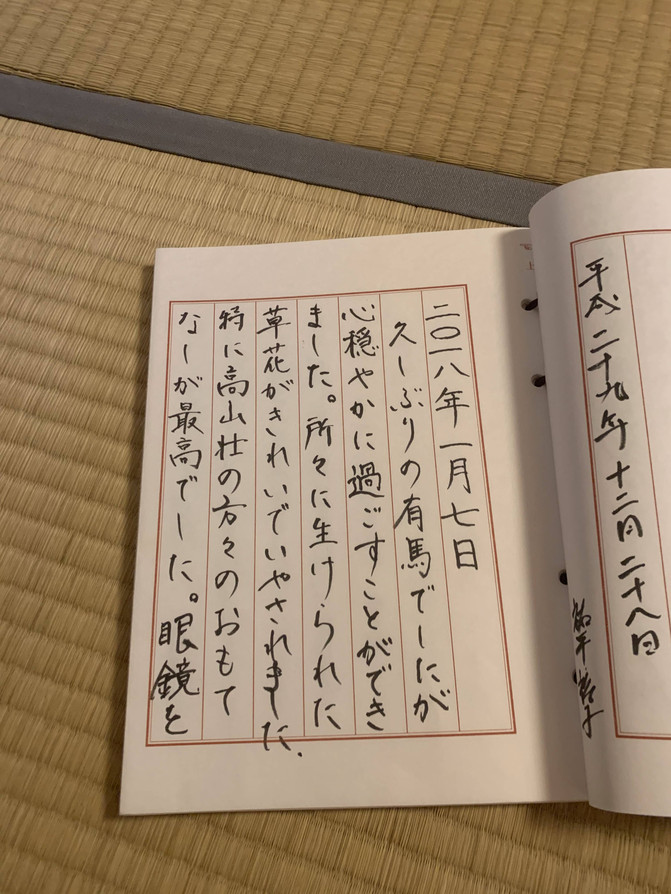 平成二十九年十二月二十八日
二〇一八年一月七日
久しぶりの有馬でしたが
心穏やかに過ごすことができ
ました。所々に生けられた
草花がきれいでいやされました.
特に高山荘の方々のおもて
なしが最高でした。眼鏡を